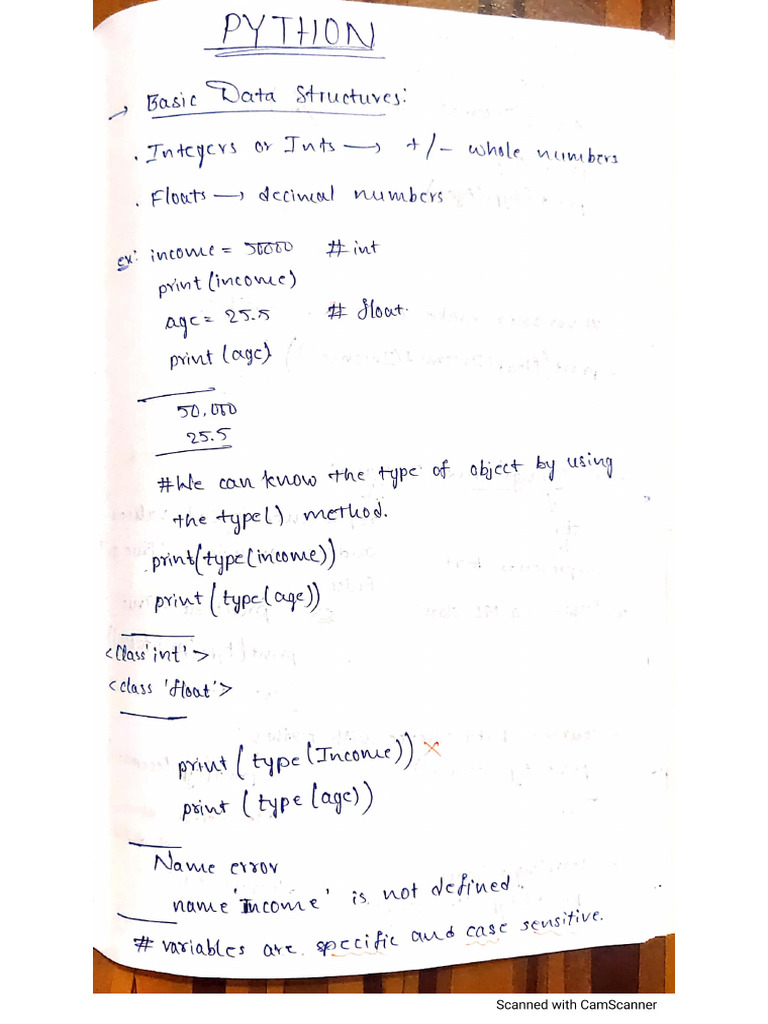 PYTHON
→ Basic Data Structures:
. Integers or Ints → +/- whole numbers
. Floats → decimal numbers
ex: income = 50000 # int
print(income)
age = 25.5 # float.
print(age)
50,000
25.5
#We can know the type of object by using
the type() method.
print(type(income))
print(type(age))
<Class'int'>
<class 'float'>
print(type(Income)) ×
print(type(age))
Name error
name 'Income' is not defined.
# variables are specific and case sensitive.
Scanned with CamScanner